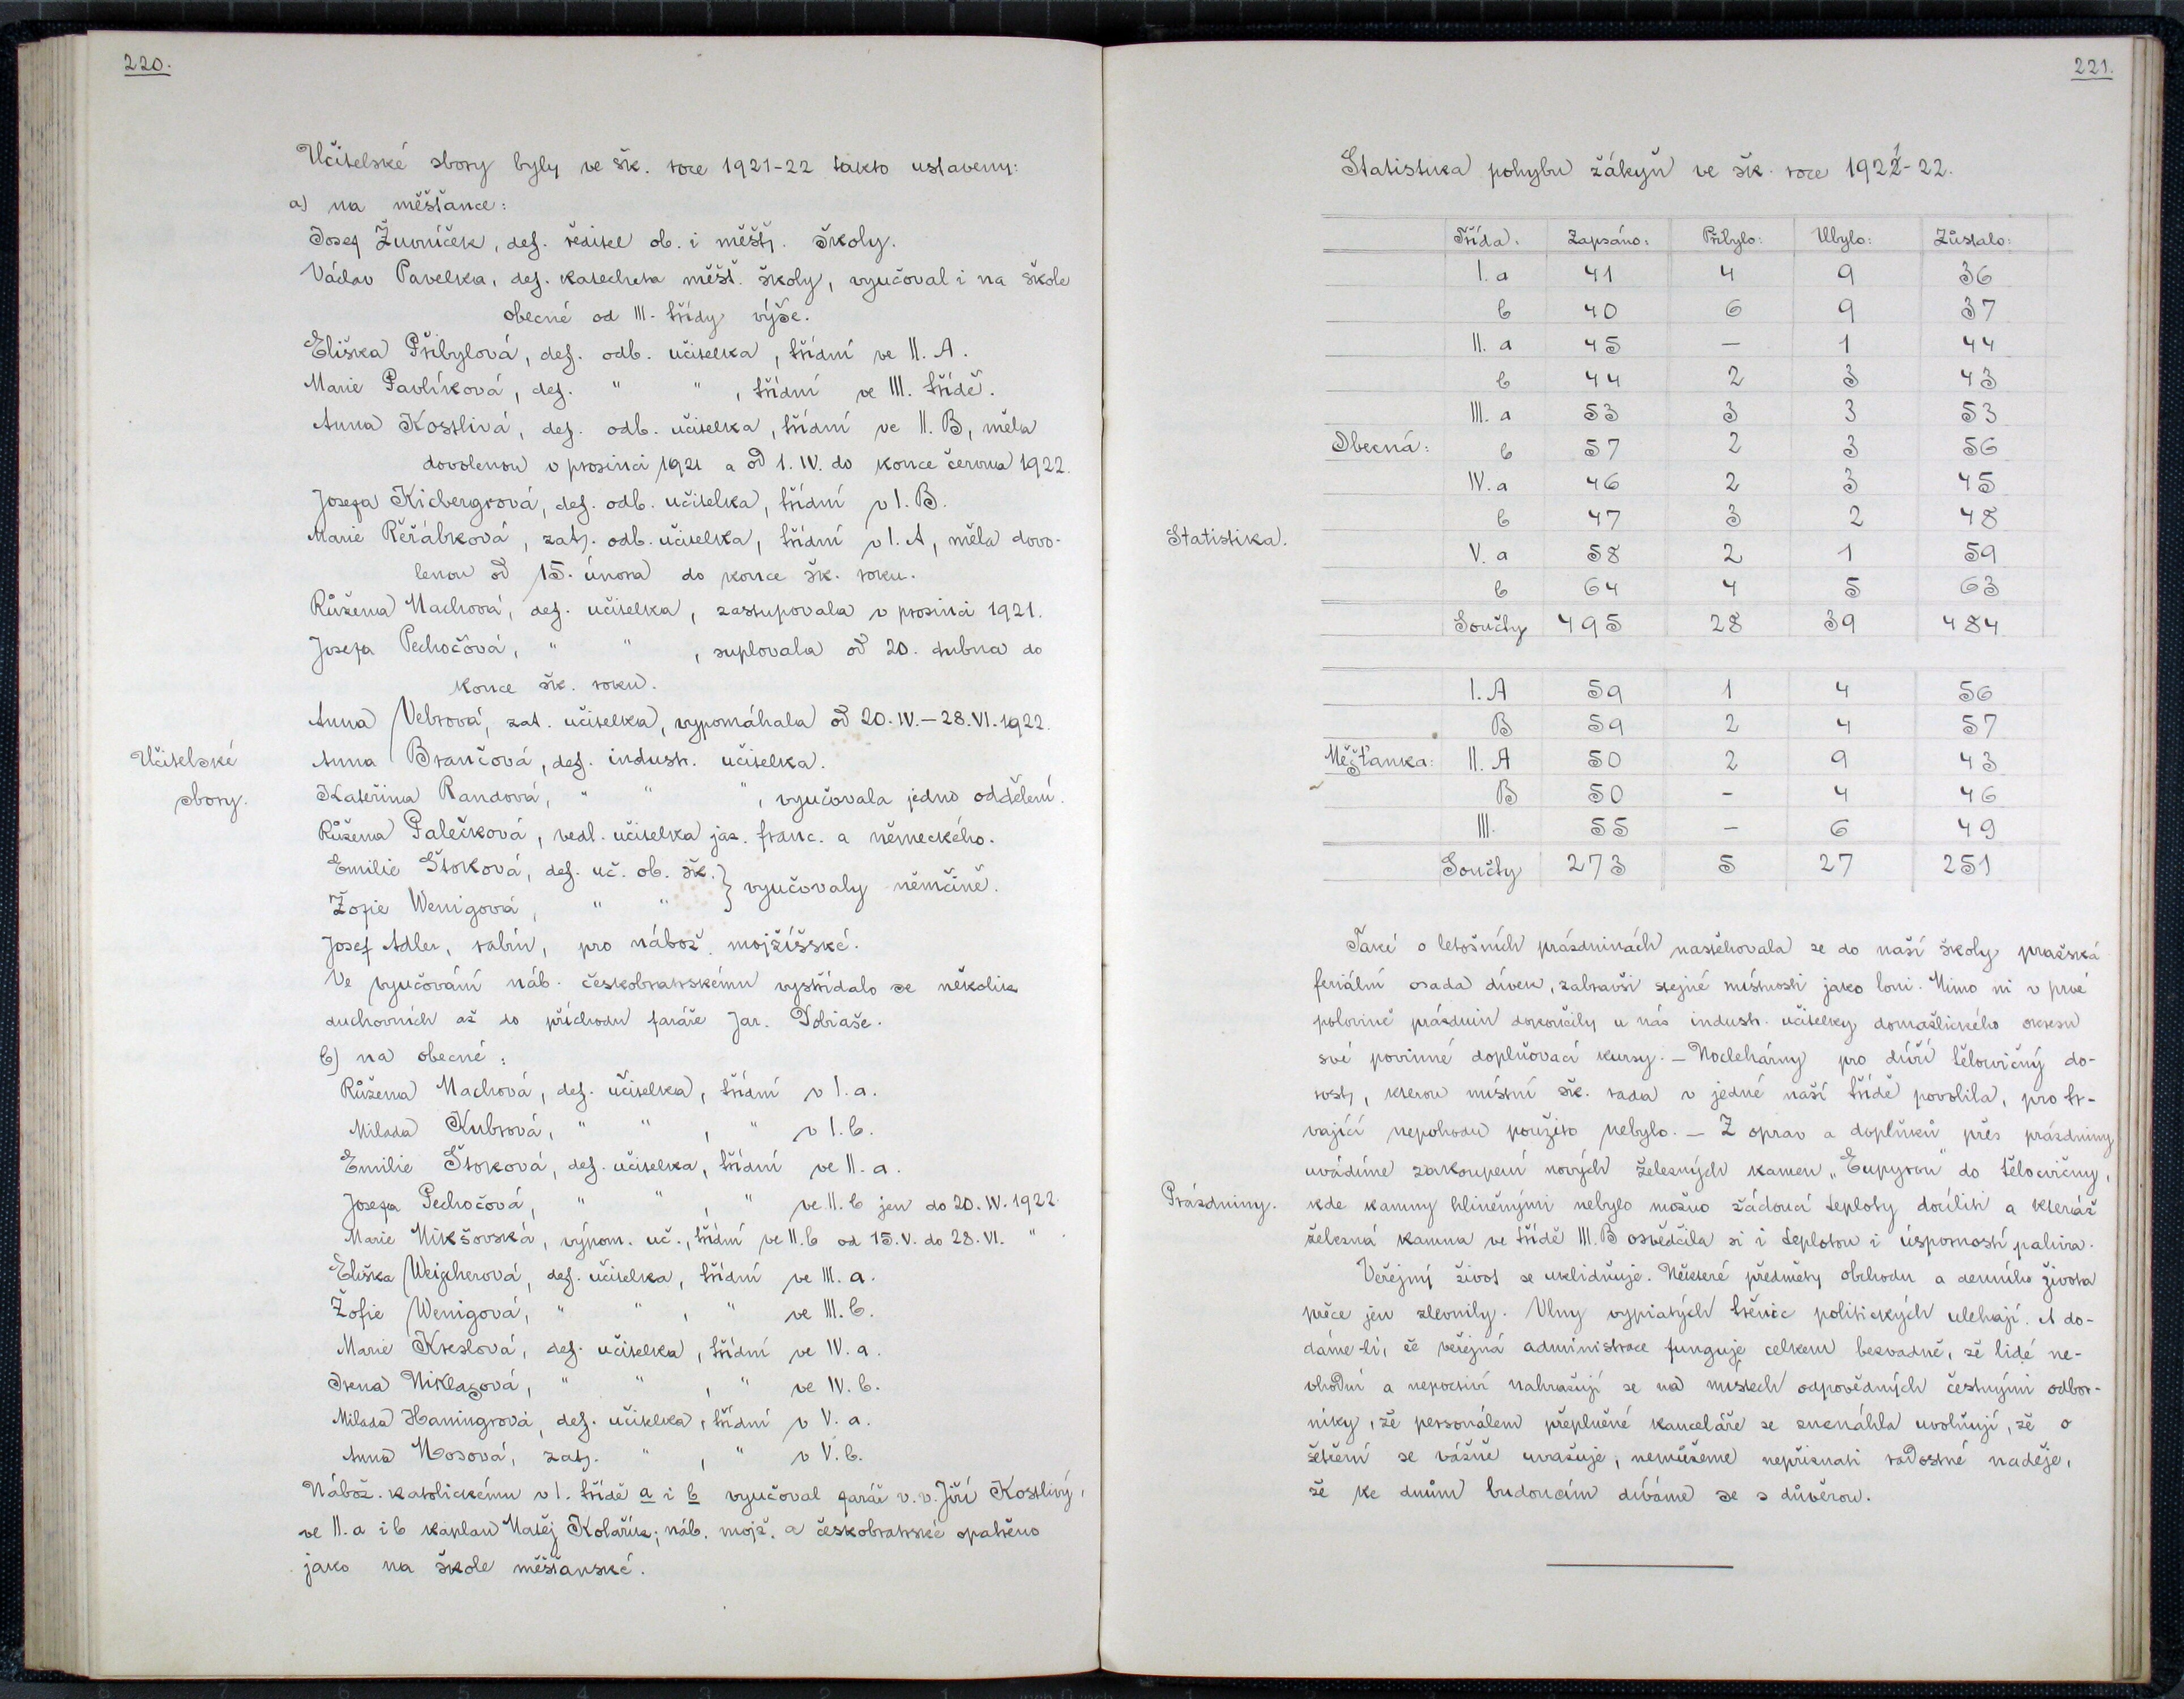 220.
Učitelské sbory byly ve šk. roce 1921-22 takto ustaveny:
a) na měšťance:
Josef Žurníček, def. ředitel ob. i měšť. školy.
Václav Pavelka, def. katecheta měšť. školy, vyučoval i na škole
obecné od III. třídy výše.
Eliška Přibylová, def. odb. učitelka, třídní ve II. A.
Marie Pavlíková, def. " " , třídní ve III. třídě.
Anna Kostlivá, def. odb. učitelka, třídní ve II. B, měla
dovolenou v prosinci 1921 a od 1. IV. do konce června 1922.
Josefa Kicbergrová, def. odb. učitelka, třídní v I. B.
Marie Řeřábková, zat. odb. učitelka, třídní v I. A, měla dovo-
lenou od 15. února do konce šk. roku.
Růžena Machová, def. učitelka, zastupovala v prosinci 1921.
Josefa Pechočová, " " , suplovala od 20. dubna do
konce šk. roku.
Anna Vebrová, zat. učitelka, vypomáhala od 20. IV. – 28. VI. 1922.
Učitelské
sbory.
Anna Brančová, def. industr. učitelka.
Kateřina Randová, " " " , vyučovala jedno oddělení.
Růžena Palečková, vedl. učitelka jaz. franc. a německého.
Emilie Štoková, def. uč. ob. šk. } vyučovaly němčině.
Žofie Wenigová, " "
Josef Adler, rabín, pro nábož. mojžíšské.
Ve vyučování náb. českobratrskému vystřídalo se několik
duchovních až do příchodu faráře Jar. Tobiáše.
b) na obecné:
Růžena Machová, def. učitelka, třídní v I. a.
Milada Kubrová, " " , " v I. b.
Emilie Štoková, def. učitelka, třídní ve II. a.
Josefa Pechočová, " " , " ve II. b jen do 20. IV. 1922.
Marie Mikšovská, výpom. uč., třídní ve II. b od 15. V. do 28. VI. " .
Eliška Weicherová, def. učitelka, třídní ve III. a.
Žofie Wenigová, " " , " ve III. b.
Marie Kreslová, def. učitelka, třídní ve IV. a.
Irena Niklasová, " " , " ve IV. b.
Milada Haningrová, def. učitelka, třídní v V. a.
Anna Nosová, zat. " , " v V. b.
Nábož. katolickému v I. třídě a i b vyučoval farář v. v. Jiří Kostlivý,
ve II. a i b kaplan Matěj Kolařík; náb. mojž. a českobratrské opatřeno
jako na škole měšťanské.
221.
Statistika pohybu žákyň ve šk. roce 1921-22.
Třída: Zapsáno: Přibylo: Ubylo: Zůstalo:
I. a 41 4 9 36
b 40 6 9 37
II. a 45 — 1 44
b 44 2 3 43
III. a 53 3 3 53
Obecná: b 57 2 3 56
IV. a 46 2 3 45
b 47 3 2 48
Statistika.
V. a 58 2 1 59
b 64 4 5 63
Součty 495 28 39 484
I. A 59 1 4 56
B 59 2 4 57
Měšťanka: II. A 50 2 9 43
B 50 - 4 46
III. 55 — 6 49
Součty 273 5 27 251
Také o letošních prázdninách nastěhovala se do naší školy pražská
feriální osada dívek, zabravši stejné místnosti jako loni. Mimo ni v prvé
polovině prázdnin dokončily u nás industr. učitelky domažlického okresu
své povinné doplňovací kursy. – Noclehárny pro dívčí tělocvičný do-
rost, kterou místní šk. rada v jedné naší třídě povolila, pro tr-
vající nepohodu použito nebylo. – Z oprav a doplňků přes prázdniny
uvádíme zakoupení nových železných kamen „Eupyron“ do tělocvičny,
Prázdniny.
kde kamny hliněnými nebylo možno žádoucí teploty docíliti a kteráž
železná kamna ve třídě III. B osvědčila si i teplotou i úsporností paliva.
Veřejný život se uklidňuje. Některé předměty obchodu a denního života
přece jen zlevnily. Vlny vypiatých třenic politických ulehají. A do-
dáme-li, že veřejná administrace funguje celkem bezvadně, že lidé ne-
vhodní a nepoctiví nahražují se na místech odpovědných čestnými odbor-
níky, že personálem přeplněné kanceláře se znenáhla uvolňují, že o
šetření se vážně uvažuje, nemůžeme nepřiznati radostné naděje,
že ke dnům budoucím díváme se s důvěrou.